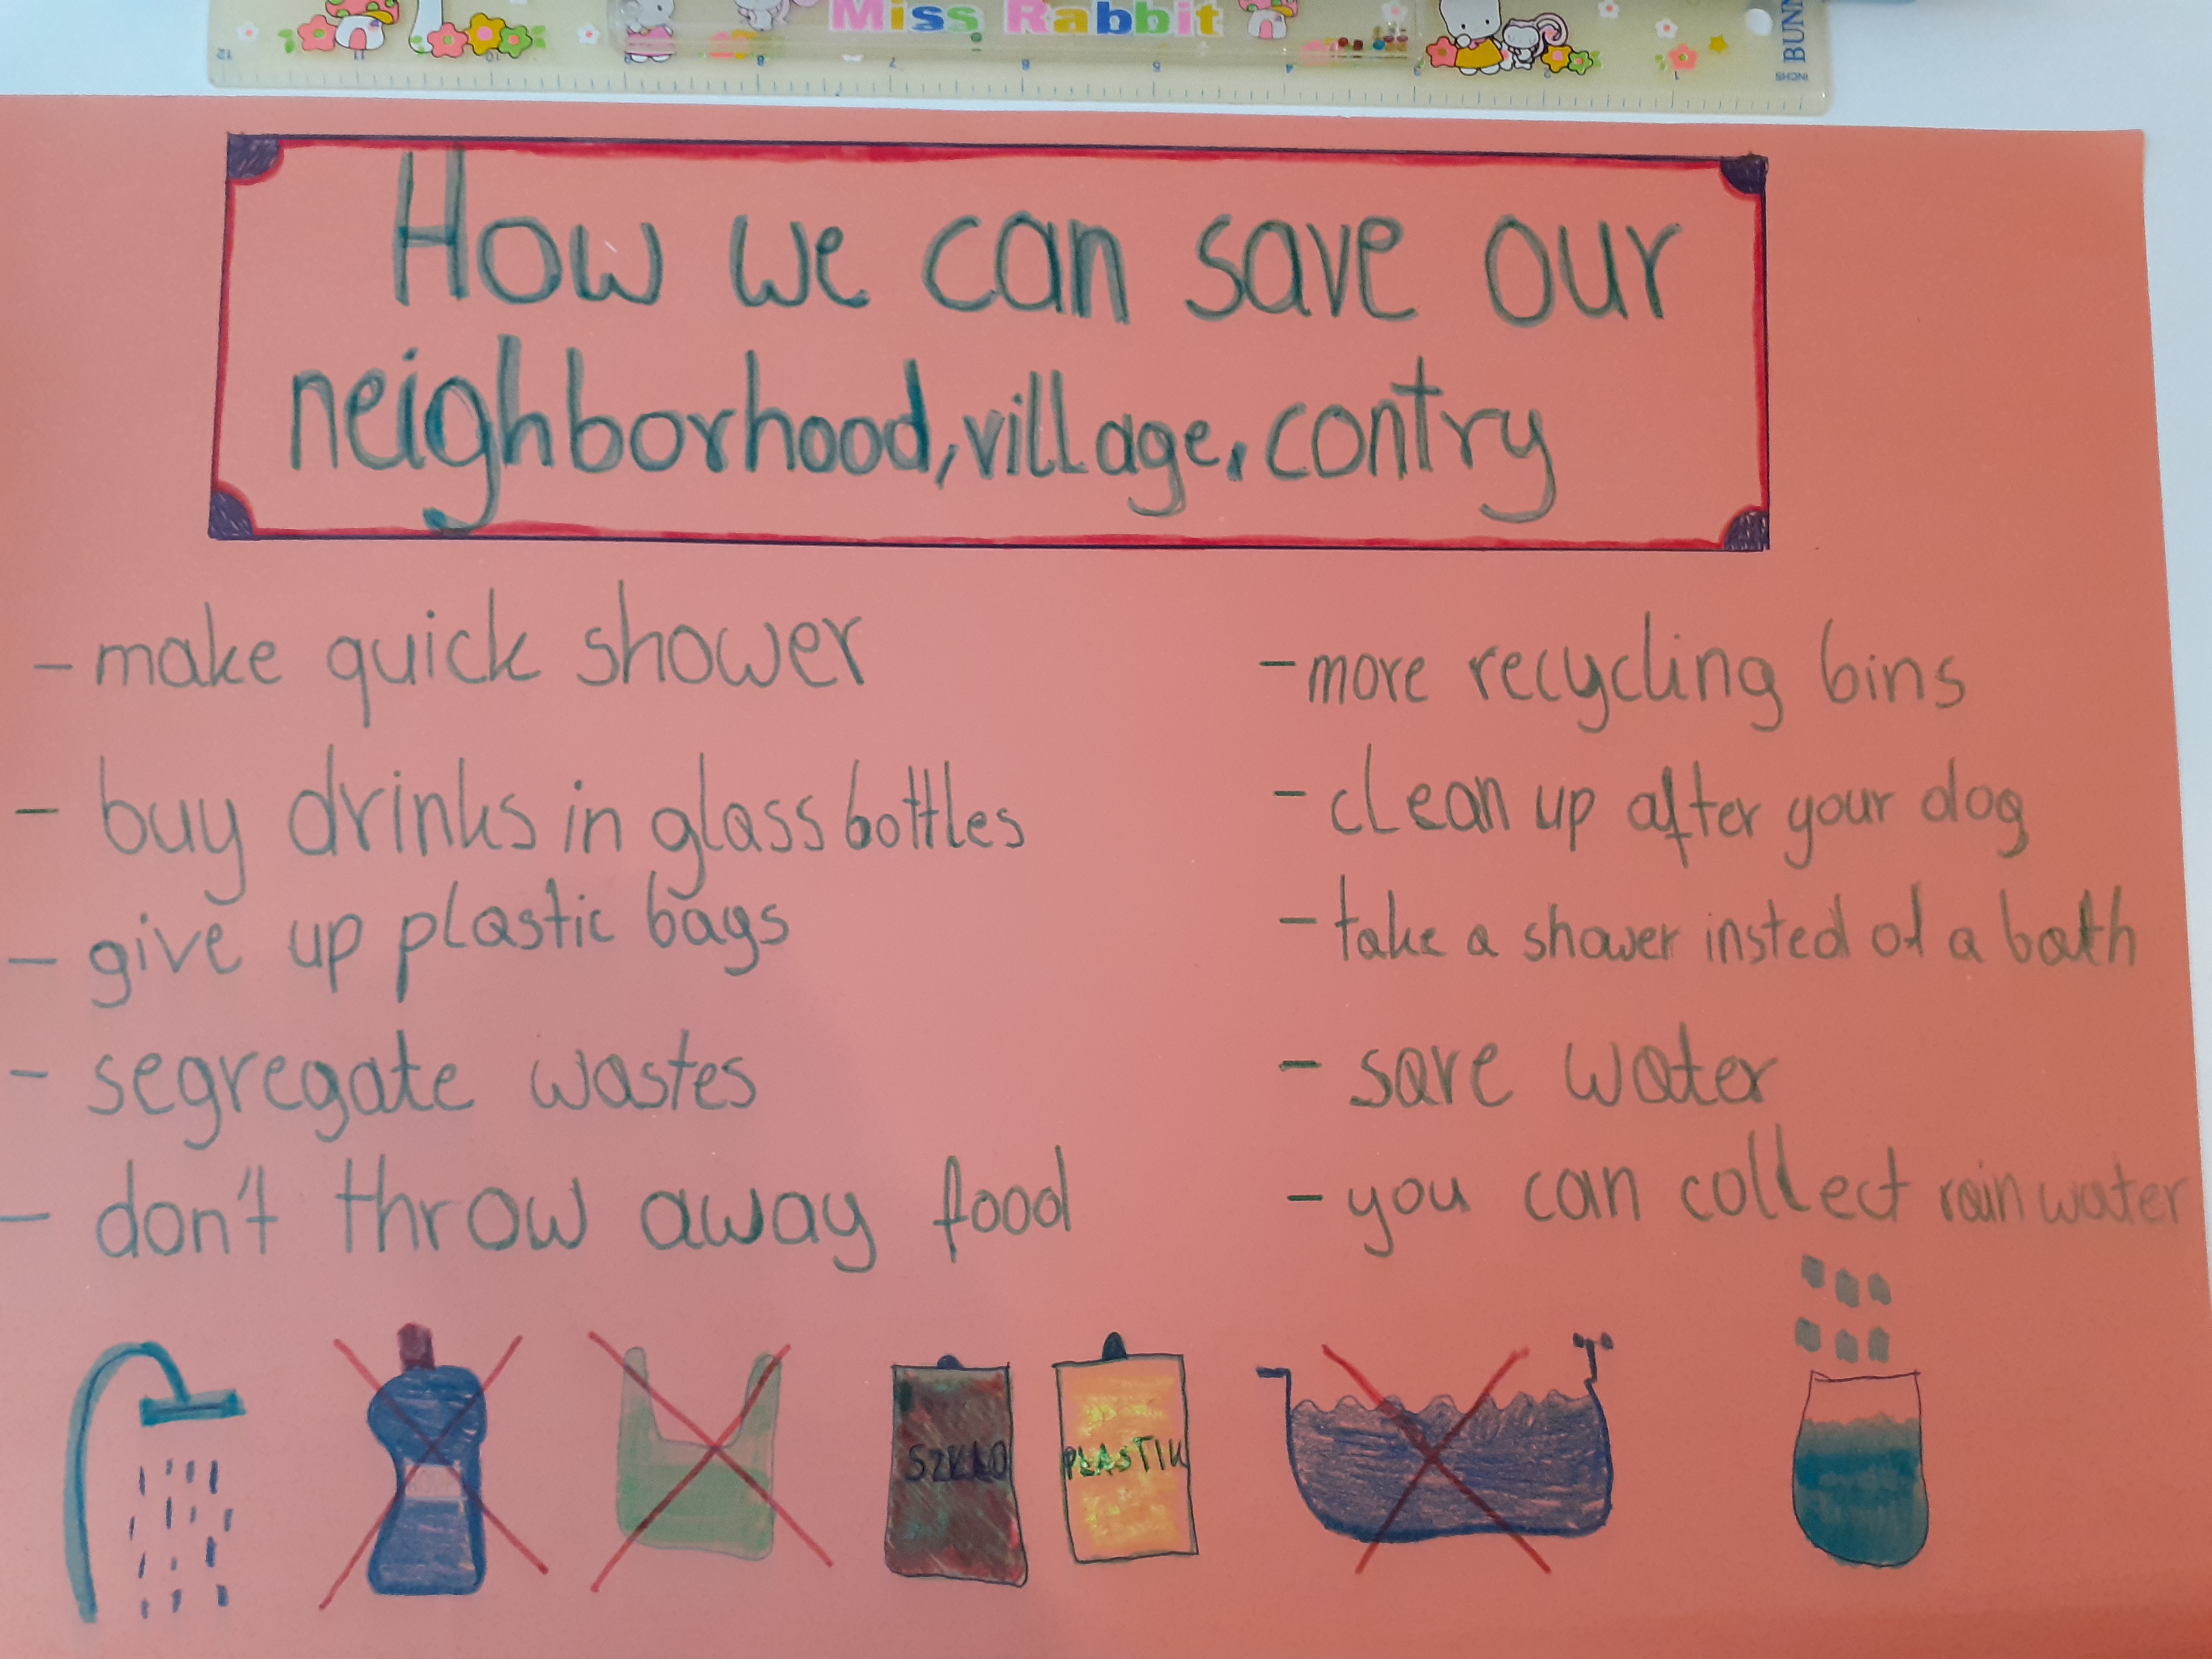 Miss Rabbit
BUNN
INCHS
12 11 10 9 8 7 6 5 4 3 2 1
How we can save our
neighborhood, village, contry
- make quick shower
- buy drinks in glass bottles
- give up plastic bags
- segregate wastes
- don't throw away food
- more recycling bins
- clean up after your dog
- take a shower insted of a bath
- save water
- you can collect rain water
SZKŁO
PLASTIK